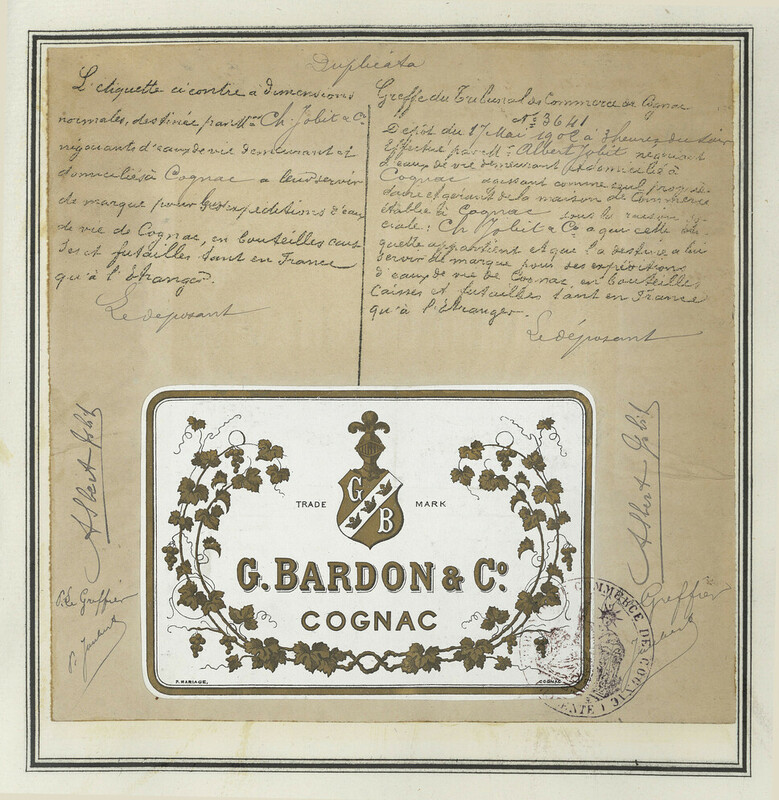 Duplicata
L'étiquette ci contre à dimensions
normales, destinée par Mrs Ch. Jobit & Co
négociants d'eaux de vie demeurant et
domiciliés à Cognac a leur servir
de marque pour des expéditions d'eaux
de vie de Cognac, en bouteilles caisses
et futailles tant en France
qu'à l'Étranger.
Le déposant
Greffe du Tribunal de Commerce de Cognac
No 3641
Dépôt du 17 Mai 1902 à 3 heures du soir
Effectué par Mr Albert Jobit négociant
d'eaux de vie demeurant et domicilié à
Cognac agissant comme seul
et gérant de la maison de Commerce
établie à Cognac sous la raison so-
ciale : Ch Jobit & Co a qui cette éti-
quette appartient et que l'a destinée a lui
servir de marque pour des expéditions
d'eaux de vie de Cognac, en bouteilles
Caisses et futailles tant en France
qu'à l'Étranger.
Le déposant
Albert Jobit
Albert Jobit
P. Le Greffier
Greffier
G
B
TRADE MARK
G. BARDON & Co.
COGNAC
P. MARIAGE,
COGNAC
COMMERCE DE COGNAC